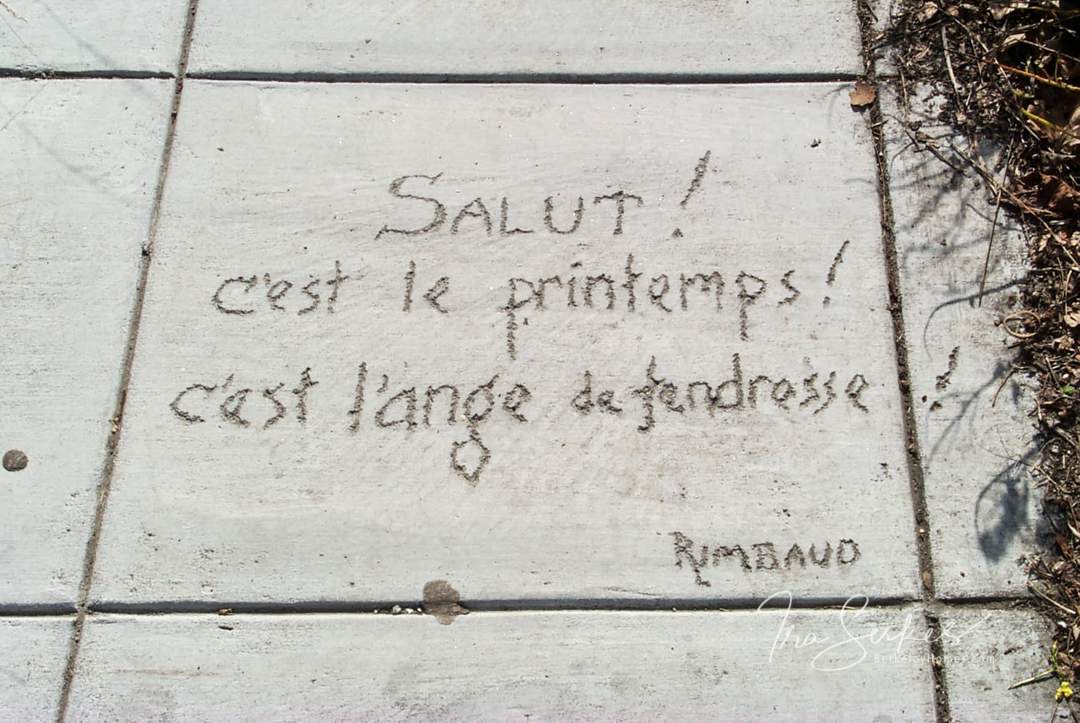 SALUT !
c'est le printemps !
c'est l'ange de tendresse !
RIMBAUD
Ina Serkes